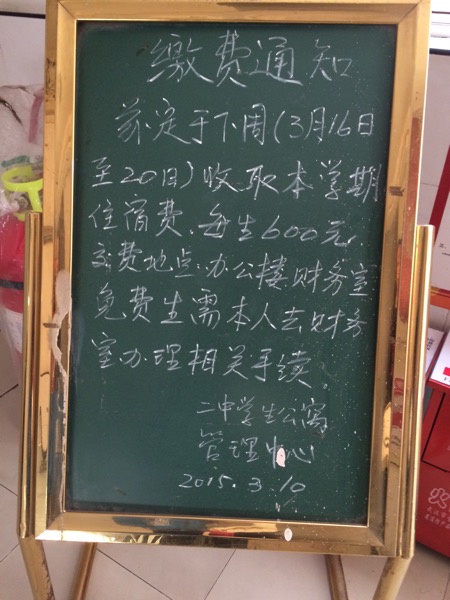 缴费通知
兹定于下周(3月16日
至20日)收取本学期
住宿费、每生600元,
交费地点:办公楼财务室
免费生需本人去财务
室办理相关手续.
二中学生公寓
管理中心
2015.3.10